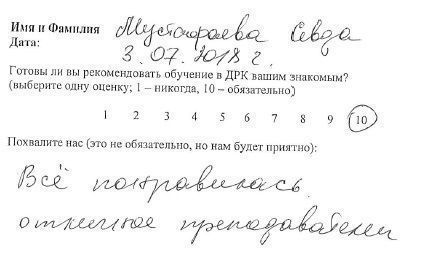 Имя и Фамилия Мустафаева Севда
Дата: 3.07.2018 г.
Готовы ли вы рекомендовать обучение в ДРК вашим знакомым?
(выберите одну оценку; 1 – никогда, 10 – обязательно)
1 2 3 4 5 6 7 8 9 10
Похвалите нас (это не обязательно, но нам будет приятно):
Всё понравилось
отличное преподаватели